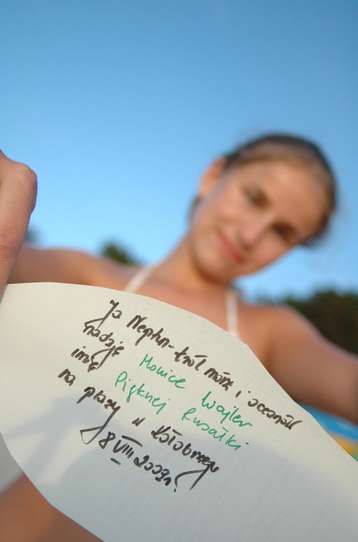 Ja Neptun-król mórz i oceanów
nadaję Monice Wajler
imię Pięknej Rusałki
na plaży w Kołobrzegu
8 VIII 2009r.